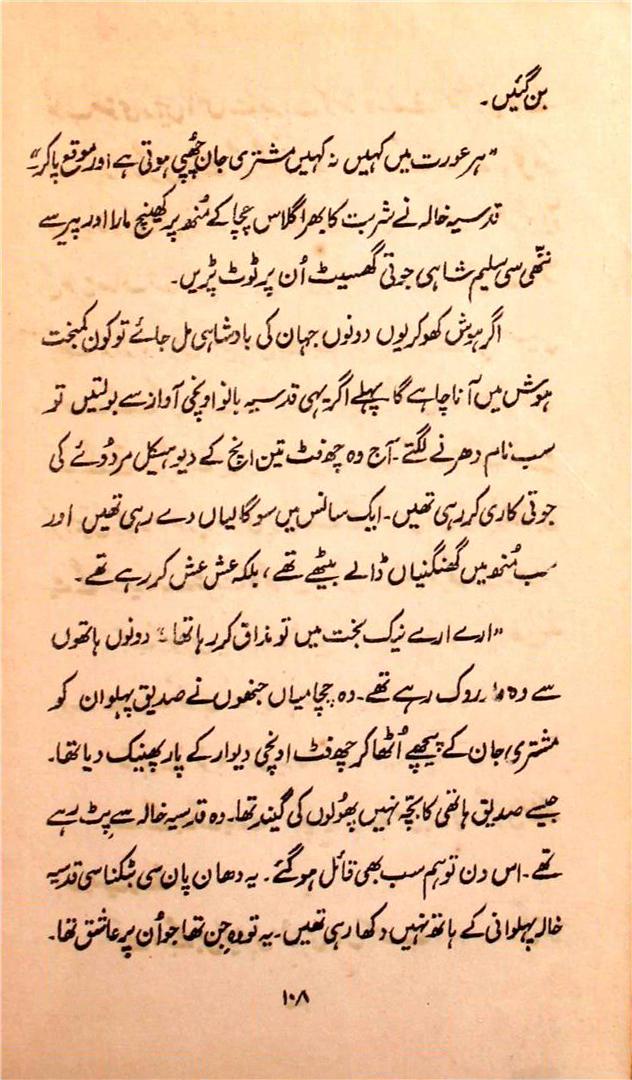 بن گئیں۔
”ہر عورت میں کہیں نہ کہیں مشتری جان چھپی ہوتی ہے اور موقع پا کر۔“
قدسیہ خالہ نے شربت کا بھرا گلاس چچا کے منھ پر کھینچ مارا اور پیر سے
ننھّی سی سلیم شاہی جوتی گھسیٹ اُن پر ٹوٹ پڑیں۔
اگر ہوش کھو کر یوں دونوں جہان کی بادشاہی مل جائے تو کون کمبخت
ہوش میں آنا چاہے گا پہلے اگر یہی قدسیہ بانو اونچی آواز سے بولتیں تو
سب نام دھرنے لگتے۔ آج وہ چھ فٹ تین انچ کے دیو ہیکل مردوئے کی
جوتی کاری کر رہی تھیں۔ ایک سانس میں سو گالیاں دے رہی تھیں اور
سب مُنھ میں گھنگنیاں ڈالے بیٹھے تھے، بلکہ عش عش کر رہے تھے۔
”ارے ارے نیک بخت میں تو مذاق کر رہا تھا۔“ دونوں ہاتھوں
سے وہ وار روک رہے تھے۔ وہ چچا میاں جنھوں نے صدیق پہلوان کو
مشتری جان کے پیچھے اُٹھا کر چھ فٹ اونچی دیوار کے پار پھینک دیا تھا۔
جیسے صدیق ہاتھی کا بچّہ نہیں پھُولوں کی گیند تھا۔ وہ قدسیہ خالہ سے پِٹ رہے
تھے۔ اس دن تو ہم سب بھی قائل ہو گئے۔ یہ دھان پان سی ٹھگنا سی قدسیہ
خالہ پہلوانی کے ہاتھ نہیں دکھا رہی تھیں۔ یہ تو وہ جِن تھا جو اُن پر عاشق تھا۔
۱۰۸